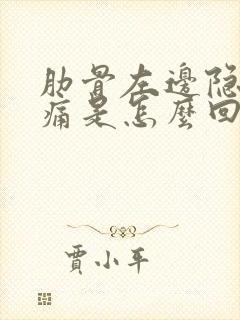 肋骨左邊隐
痛是怎麼回
賈小平